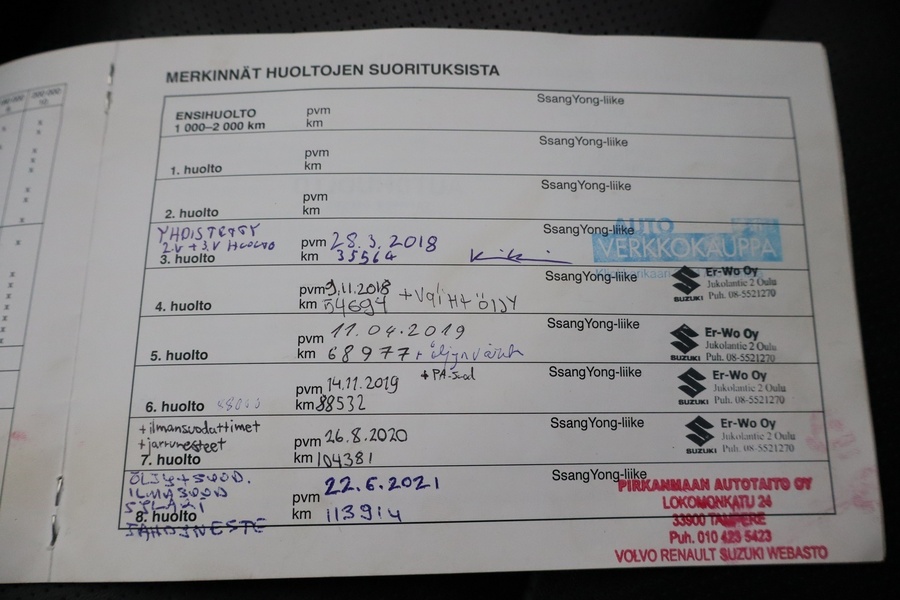 MERKINNÄT HUOLTOJEN SUORITUKSISTA
ENSIHUOLTO
1 000–2 000 km
pvm
km
SsangYong-liike
1. huolto
pvm
km
SsangYong-liike
2. huolto
pvm
km
SsangYong-liike
YHDISTETTY
2.V + 3.V HUOLTO
3. huolto
pvm 28.3.2018
km 35564
SsangYong-liike
AUTO
VERKKOKAUPPA
4. huolto
pvm 9.11.2018
km 54694 + väliHt öljy
SsangYong-liike
SUZUKI
Er-Wo Oy
Jukolantie 2 Oulu
Puh. 08-5521270
5. huolto
pvm 11.04.2019
km 68977
SsangYong-liike
SUZUKI
Er-Wo Oy
Jukolantie 2 Oulu
Puh. 08-5521270
6. huolto
pvm 14.11.2019 + PA-suod
km 88532
SsangYong-liike
SUZUKI
Er-Wo Oy
Jukolantie 2 Oulu
Puh. 08-5521270
+ilmansuodattimet
+jarrunesteet
7. huolto
pvm 26.8.2020
km 104381
SsangYong-liike
SUZUKI
Er-Wo Oy
Jukolantie 2 Oulu
Puh. 08-5521270
ÖLJY+SUOD.
ILMASUOD
8. huolto
pvm 22.6.2021
km 113914
SsangYong-liike
PIRKANMAAN AUTOTAITO OY
LOKOMONKATU 24
33900 TAMPERE
Puh. 010 423 5423
VOLVO RENAULT SUZUKI WEBASTO